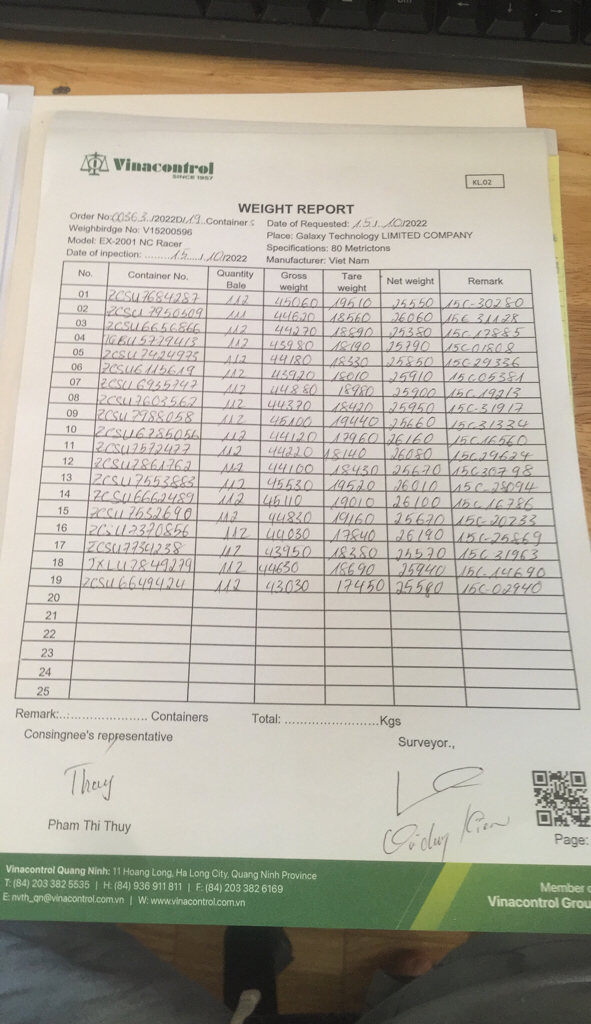 Vinacontrol
SINCE 1957
KL.02
WEIGHT REPORT
Order No:00363/2022D/19.Containers Date of Requested: 15/10/2022
Weighbirdge No: V15200596 Place: Galaxy Technology LIMITED COMPANY
Model: EX-2001 NC Racer Specifications: 80 Metrictons
Date of inpection: ........15..../10/2022 Manufacturer: Viet Nam
No. Container No. Quantity Bale Gross weight Tare weight Net weight Remark
01 ZCSU7684287 112 45060 19510 25550 15C-30280
02 ZCSU7950509 111 44620 18560 26060 15C 31128
03 ZCSU6656866 112 44270 18890 25380 15C 17885
04 112 43980 18190 25790 15C01808
05 ZCSU7424973 112 44180 18330 25850 15C29336
06 ZCSU6115619 112 43920 18010 25910 15C05381
07 ZCSU6935747 112 44880 18980 25900 15C19213
08 ZCSU7603562 112 44370 18420 25950 15C-31917
09 ZCSU7988058 112 45100 19440 25660 15C31334
10 ZCSU6785056 112 44120 17960 26160 15C16560
11 ZCSU7572477 112 44220 18140 26080 15C29624
12 ZCSU7861762 112 44100 18430 25670 15C30798
13 ZCSU7553883 112 45530 19520 26010 15C-23094
14 ZCSU6662489 112 45110 19010 26100 15C16786
15 ZCSU7532690 112 44830 19160 25670 15C-20733
16 ZCSU7370856 112 44030 17840 26190 15C-25869
17 ZCSU7734238 112 43950 18380 25570 15C31963
18 JXLU7849279 112 44630 18690 25940 15C-14690
19 ZCSU6649424 112 43030 17450 25580 15C-02940
20
21
22
23
24
25
Remark:........................ Containers Total: ........................Kgs
Consingnee's representative Surveyor.,
Thuy
Pham Thi Thuy
Page:
Vinacontrol Quang Ninh: 11 Hoang Long, Ha Long City, Quang Ninh Province
T: (84) 203 382 5535 | H: (84) 936 911 811 | F: (84) 203 382 6169
E: nvth_qn@vinacontrol.com.vn | W: www.vinacontrol.com.vn
Member
Vinacontrol Grou